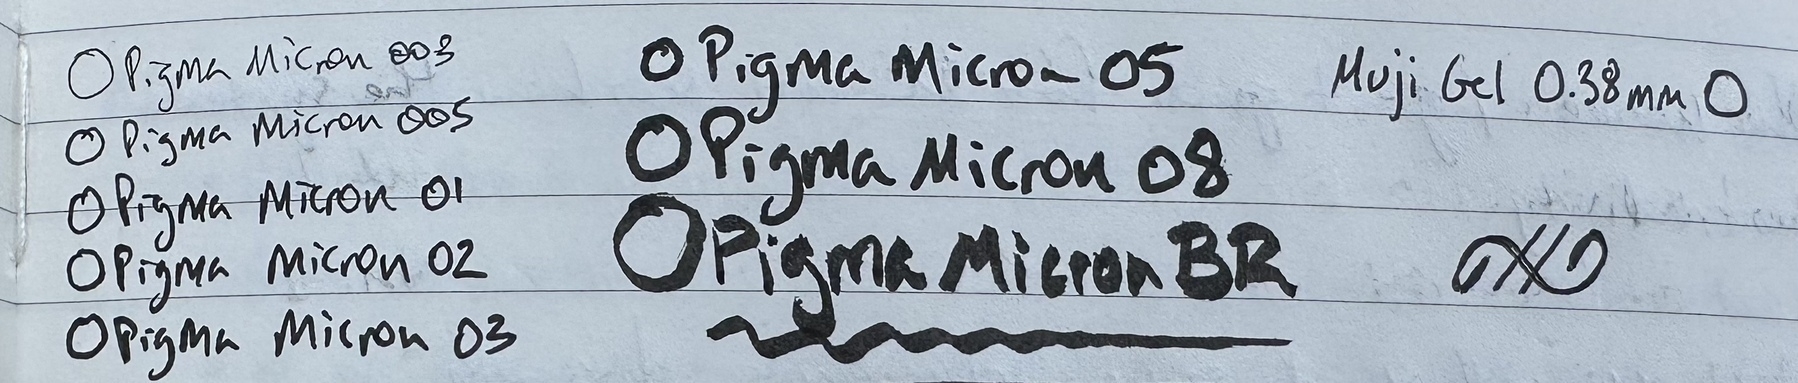 Pigma Micron 003
Pigma Micron 005
Pigma Micron 01
Pigma Micron 02
Pigma Micron 03
Pigma Micron 05
Pigma Micron 08
Pigma Micron BR
Muji Gel 0.38mm